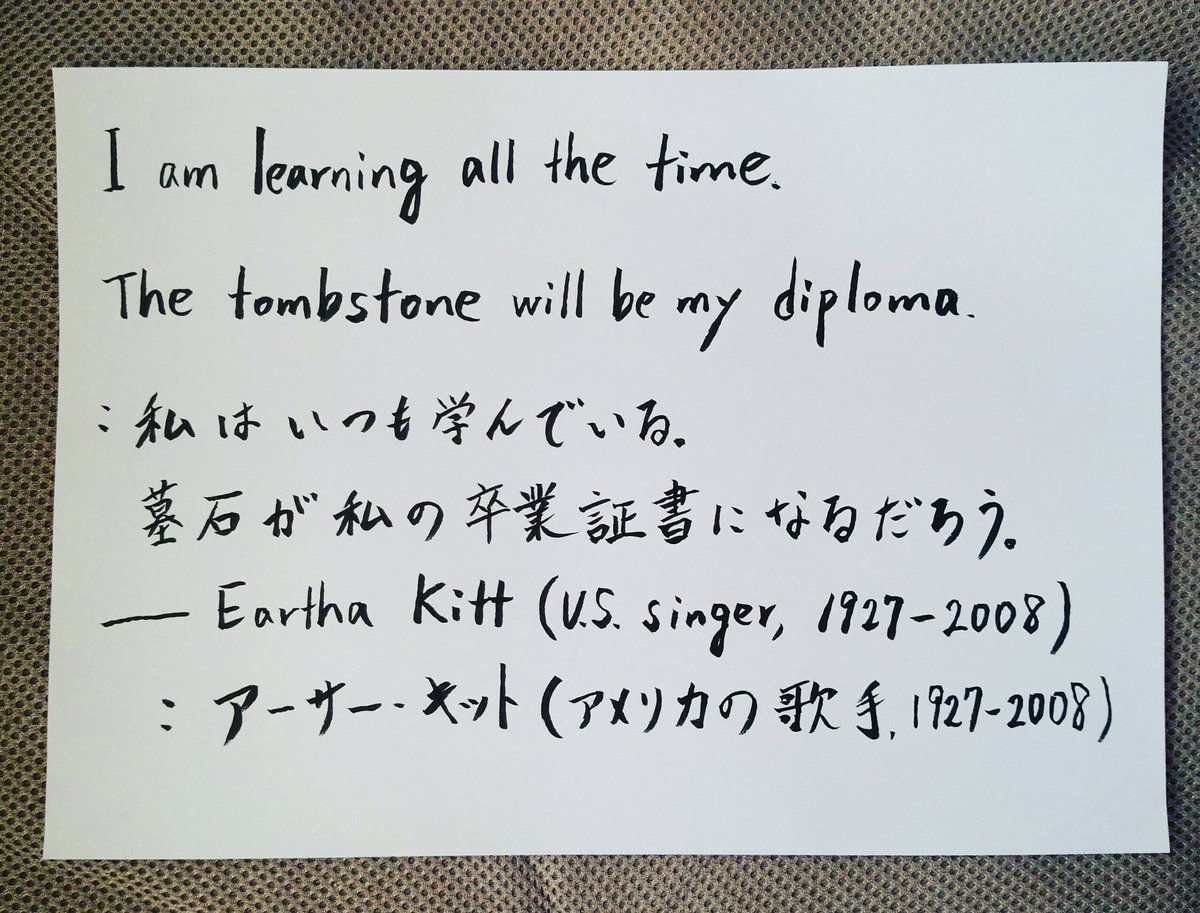 I am learning all the time.
The tombstone will be my diploma.
：私はいつも学んでいる。
墓石が私の卒業証書になるだろう。
— Eartha Kitt (U.S. singer, 1927-2008)
：アーサー・キット(アメリカの歌手, 1927-2008)